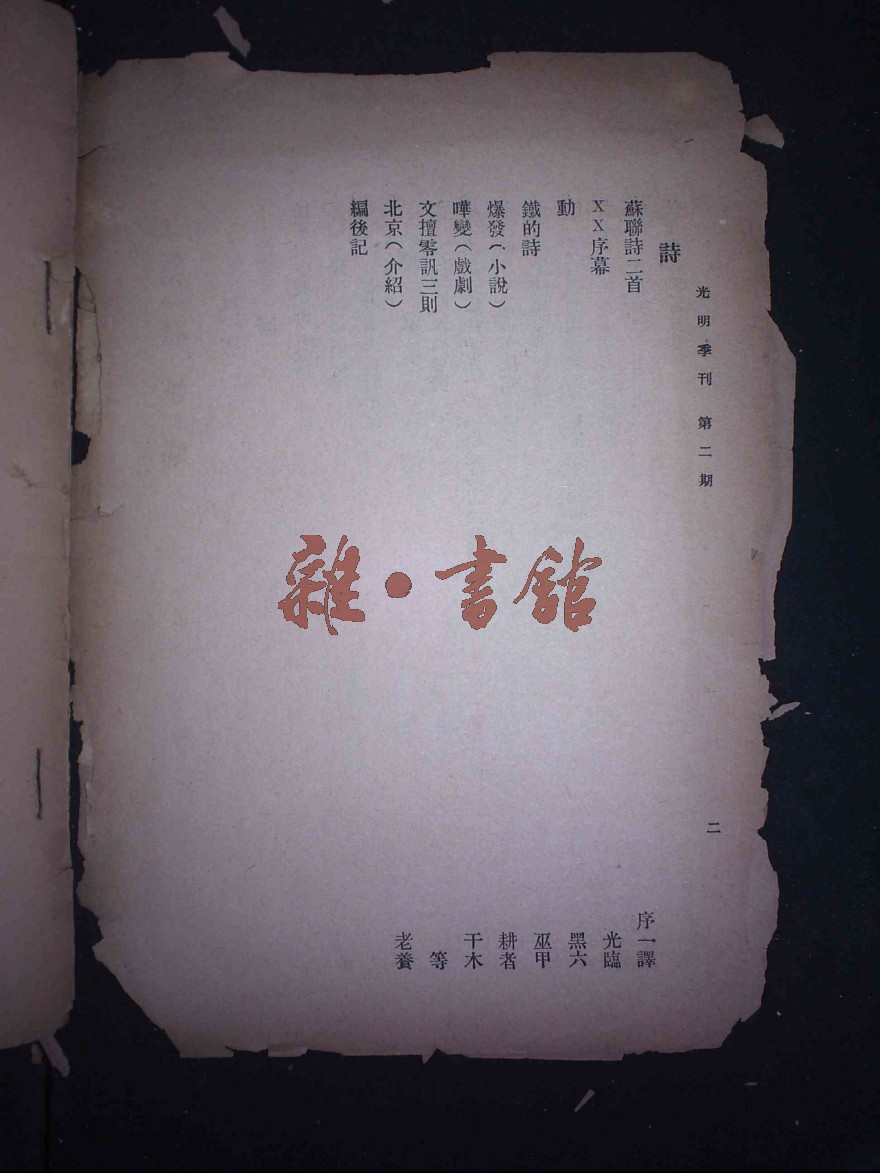 光明季刊 第二期
二
詩
蘇聯詩二首 序一譯
XX序幕 光臨
動 黑六
鐵的詩 巫甲
爆發（小說） 耕者
嘩變（戲劇） 干木
文擅零訊三則 等
北京（介紹） 老養
編後記
雜·書館